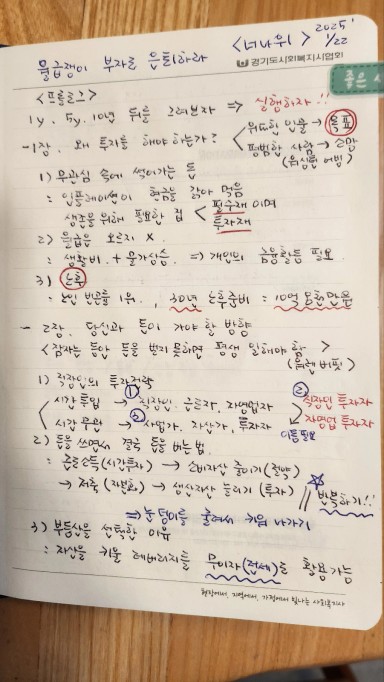 2025
<너나위> 1/22
월급쟁이 부자로 은퇴하라
경기도사회복지사협회
좋은 사
<프롤로그>
1y, 5y, 10년 뒤를 그려보자 ⇒ 실행하자!!
-1장. 왜 투자를 해야 하는가?
< 위대한 인물 → 목표
평범한 사람 → 소망
(워싱턴 어빙)
1) 무관심 속에 썩어가는 돈
: 인플레이션이 현금을 갉아 먹음
생존을 위해 필요한 집 < 필수재 이며
투자재
2) 월급은 오르지 X
: 생활비 + 물가상승 ⇒ 개인의 금융활동 필요.
3) 노후
: 노인 빈곤율 1위, 30년 노후준비 = 10억 오천만원
- 2장. 당신과 돈이 가야 할 방향
< 잠자는 동안 돈을 벌지 못하면 평생 일해야 함. >
(워런버핏)
1) 직장인의 투자전략
시간 투입 → ① 직장인, 근로자, 자영업자
시간 무관 → ③ 사업가, 자산가, 투자자
② 직장인 투자자
자영업 투자자
이동필요
2) 돈을 쓰면서 결국 돈을 버는 법.
: 근로소득(시간투자) → 소비자산 줄이기(절약)
→ 저축(자본화) → 생산자산 늘리기(투자)
☆ 반복하기!!
⇒ 눈덩이를 굴려서 키워 나가기
3) 부동산을 선택한 이유
: 자산을 키울 레버리지를 무이자(전세)로 활용가능
현장에서, 지역에서, 가정에서 빛나는 사회복지사